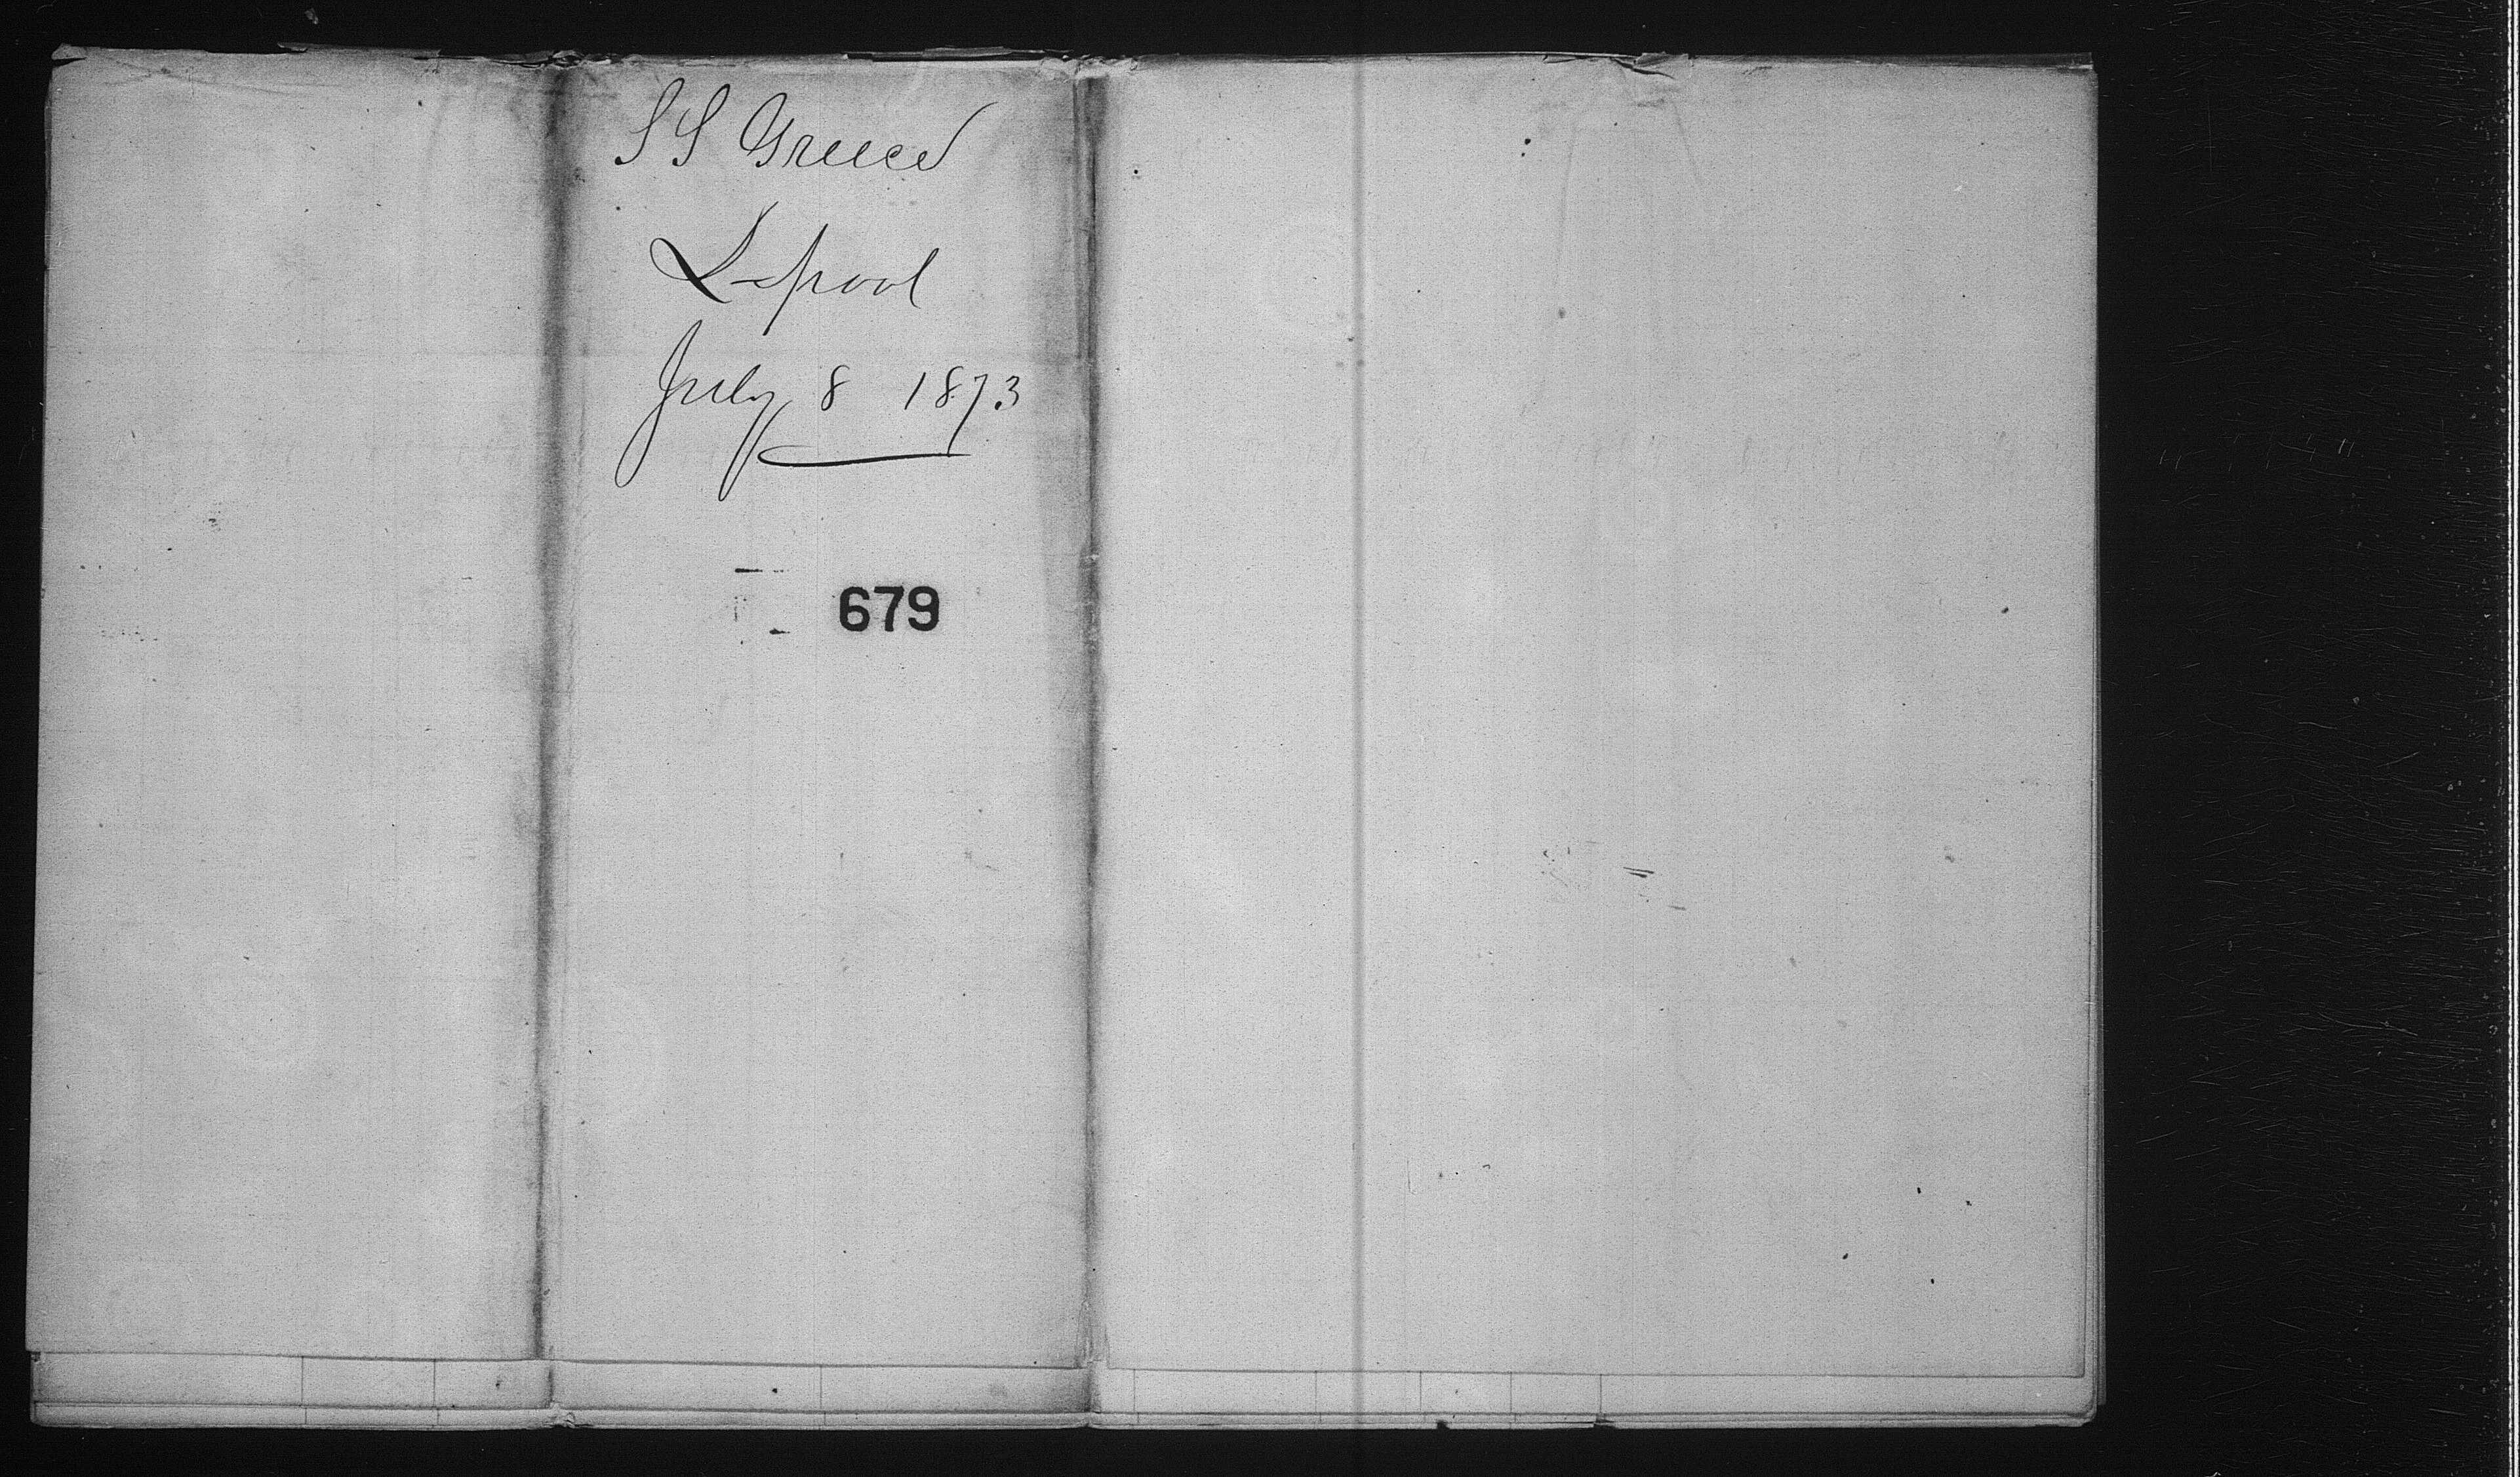 SS Greece
L-pool
July 8 1873
679